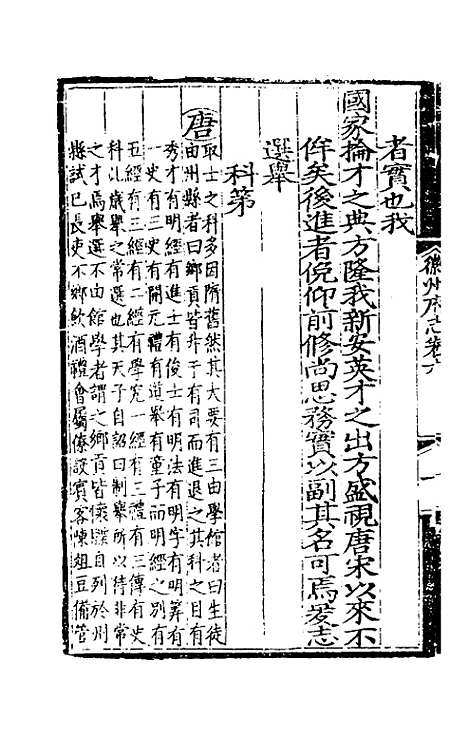 者實也我
國家掄才之典方隆我新安英才之出方盛視唐宋以來不
侔矣後進者俛仰前修尚思務實以副其名可焉爰志
選舉
科第
唐
取士之科多因隋舊然其大要有三由學館者曰生徒
由州縣者曰鄉貢皆升于有司而進退之其科之目有
秀才有明經有進士有俊士有明法有明字有明筭有
一史有三史有開元禮有道舉有童子而明經之別有
五經有三經有二經有學究一經有三禮有三傳有史
科此歲舉之常選也其天子自詔曰制舉所以待非常
之才焉舉選不由館學者謂之鄉貢皆懷牒自列於州
縣試已長吏以鄉飲酒禮會屬僚設賓客陳俎豆備管
徽州府志卷六